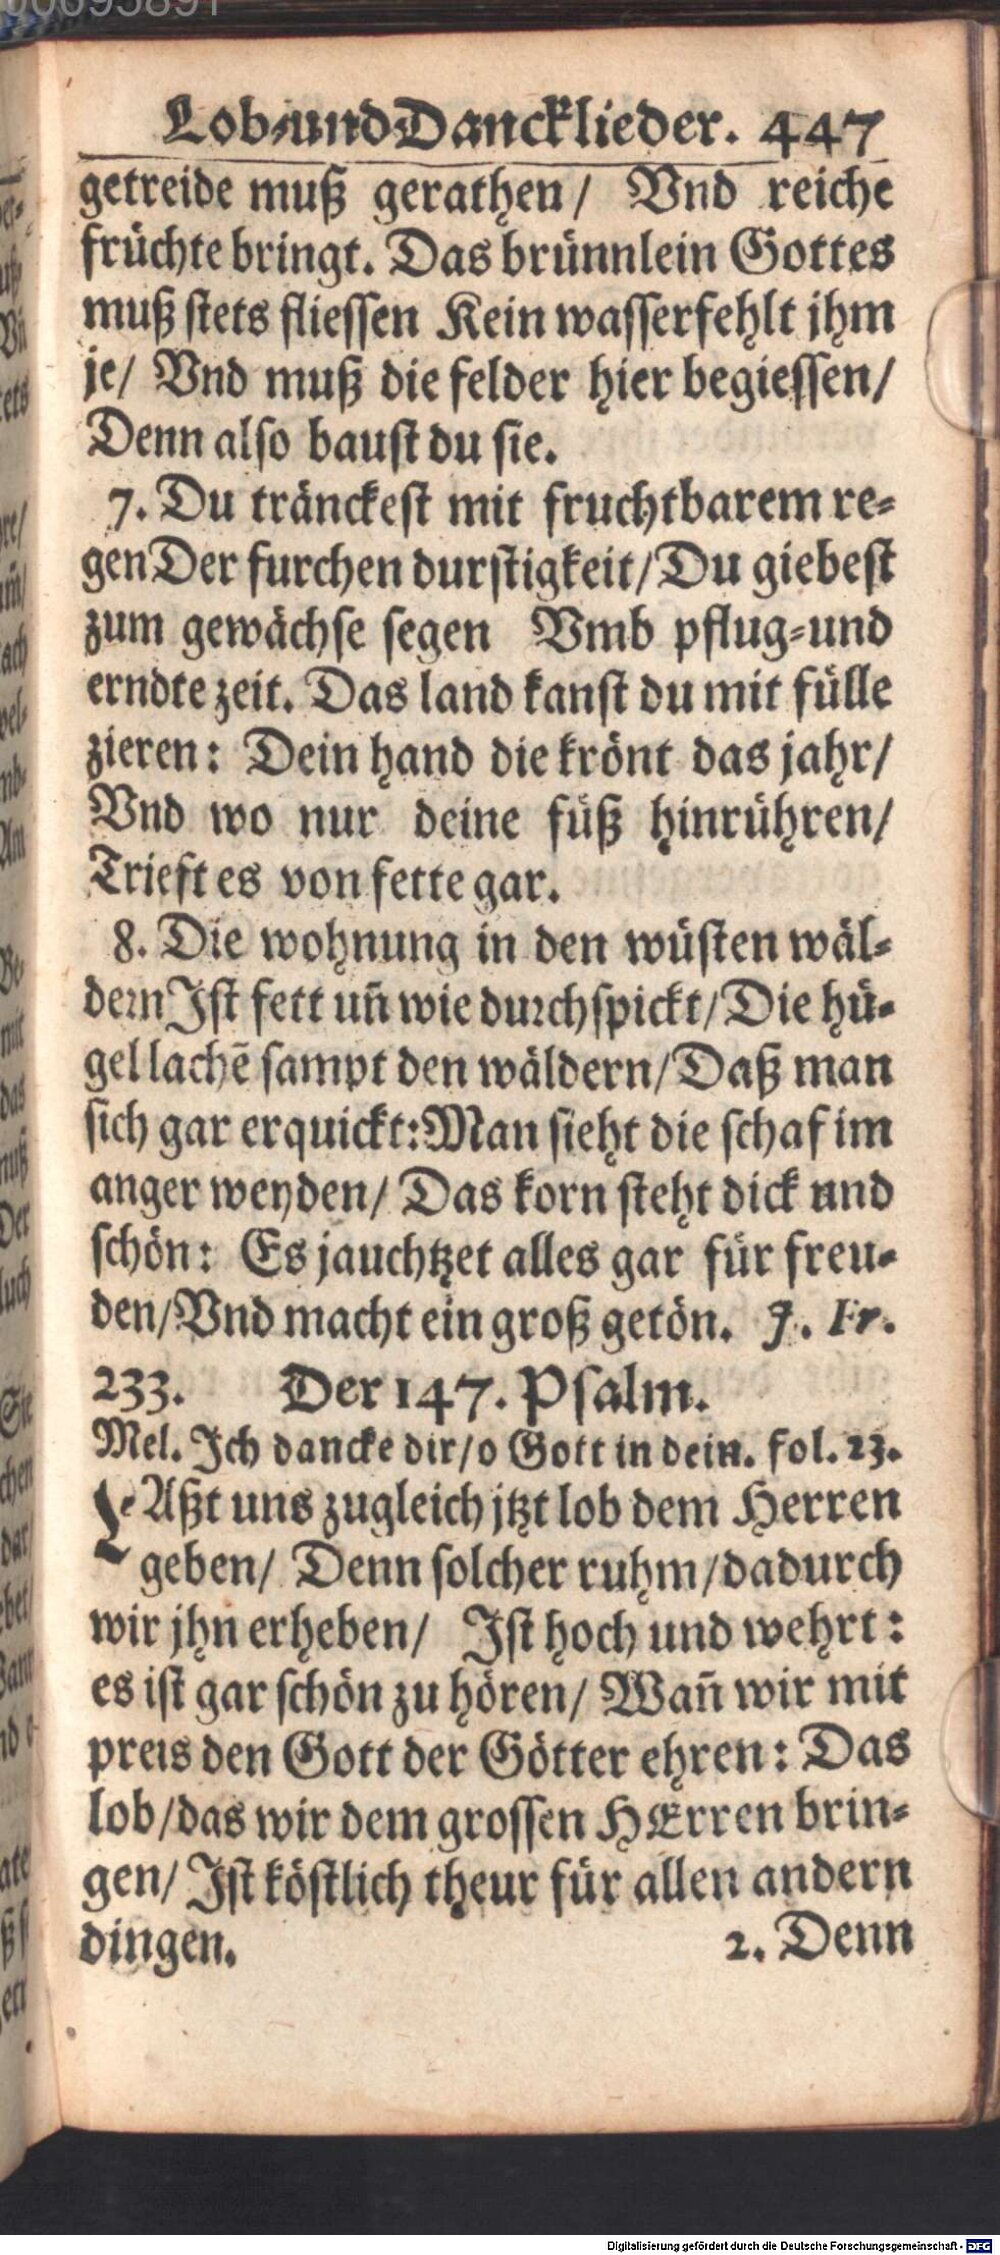 Lob-und Dancklieder. 447
getreide muß gerathen/ Vnd reiche
früchte bringt. Das brünnlein Gottes
muß stets fliessen Kein wasser fehlt jhm
je/ Vnd muß die felder hier begiessen/
Denn also baust du sie.
7. Du tränckest mit fruchtbarem re-
gen Der furchen durstigkeit/ Du giebest
zum gewächse segen Vmb pflug-und
erndte zeit. Das land kanst du mit fülle
zieren: Dein hand die krönt das jahr/
Vnd wo nur deine füß hinrühren/
Trieft es von fette gar.
8. Die wohnung in den wüsten wäl-
dern Jst fett uñ wie durchspickt/ Die hü-
gel lachẽ sampt den wäldern/ Daß man
sich gar erquickt: Man sieht die schaf im
anger weyden/ Das korn steht dick und
schön: Es jauchtzet alles gar für freu-
den/ Vnd macht ein groß getön. J. Fr.
233. Der 147. Psalm.
Mel. Jch dancke dir/ o Gott in dein. fol. 23.
LAßt uns zugleich jtzt lob dem Herren
geben/ Denn solcher ruhm/ dadurch
wir jhn erheben/ Jst hoch und wehrt:
es ist gar schön zu hören/ Wañ wir mit
preis den Gott der Götter ehren: Das
lob/ das wir dem grossen HErren brin-
gen/ Jst köstlich theur für allen andern
dingen. 2. Denn
Digitalisierung gefördert durch die Deutsche Forschungsgemeinschaft - DFG